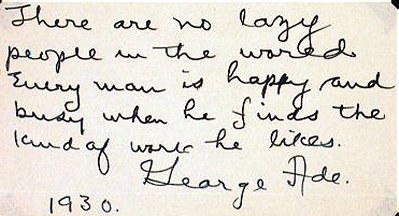 There are no lazy
people in the world
Every man is happy and
busy when he finds the
kind of work he likes.
George Ade.
1930.